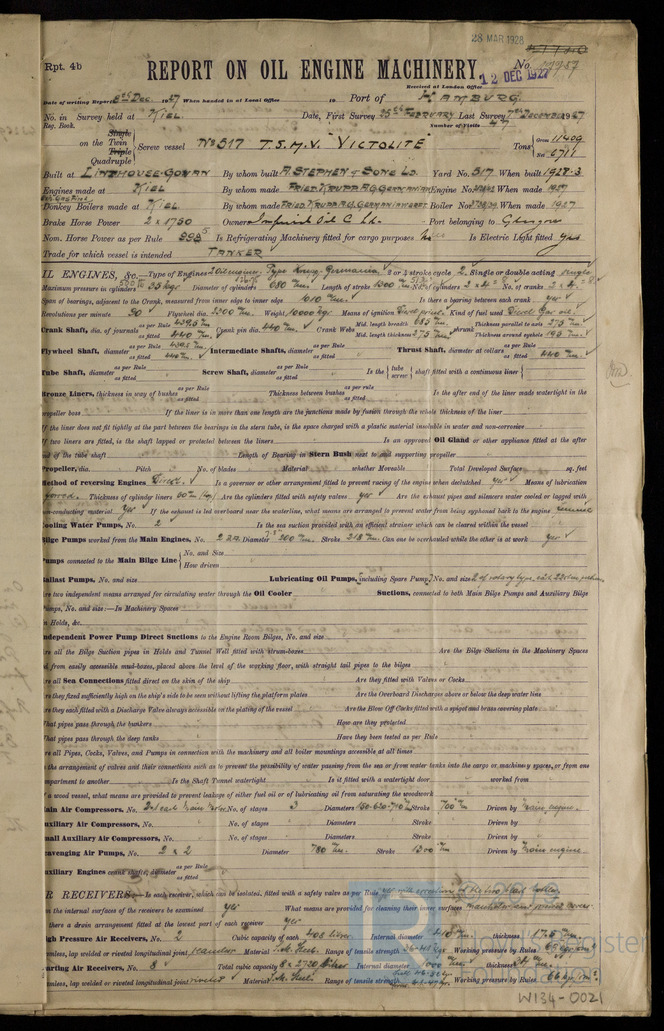 28 MAR 1928
Rpt. 4b
REPORT ON OIL ENGINE MACHINERY.
No.
Received at London Office
12 DEC 1927
Date of writing Report 8th Dec. 1927 When handed in at Local Office to Port of HAMBURG.
No. in Survey held at KIEL Date, First Survey 25th FEBRUARY Last Survey 7th DECEMBER 1927
Reg. Book. Number of Visits 47
on the Single Twin Triple Quadruple Screw vessel No 517 T.S.M.V. "VICTOLITE" Tons Gross 11409 Net 6711
Built at LINTHOUSE-GOVAN By whom built A. STEPHEN & SONS LD. Yard No. 517 When built 1928-3
Engines made at KIEL By whom made FRIED. KRUPP A.G. GERMANIA Engine No. When made 1927
Donkey Boilers made at KIEL By whom made FRIED. KRUPP A.G. GERMANIAWERFT Boiler No. When made 1927
Brake Horse Power 2 x 1750 Owners Imperial Oil C. Ld. Port belonging to Glasgow
Nom. Horse Power as per Rule Is Refrigerating Machinery fitted for cargo purposes no Is Electric Light fitted yes
Trade for which vessel is intended TANKER
IL ENGINES, &c. Type of Engines 2 Oil engines, Type Krupp-Germania 2 or 4 stroke cycle 2. Single or double acting single
Maximum pressure in cylinders 35 kgs Diameter of cylinders 680 m/m. Length of stroke 1300 m/m. No. of cylinders 2 x 4 = 8 No. of cranks 2 x 4 = 8
Span of bearings, adjacent to the Crank, measured from inner edge to inner edge 1010 m/m. Is there a bearing between each crank yes
Revolutions per minute 90 Flywheel dia. 2200 m/m. Weight 10000 kgs Means of ignition Diesel princ. Kind of fuel used Diesel Gas oil.
Crank Shaft, dia. of journals as per Rule 439.5 m/m as fitted 440 m/m. Crank pin dia. 440 m/m. Crank Webs Mid. length breadth 685 m/m. Mid. length thickness 275 m/m. shrunk Thickness parallel to axis 275 m/m. Thickness around eyehole 195 m/m.
Flywheel Shaft, diameter as per Rule 439.5 m/m. as fitted 440 m/m. Intermediate Shafts, diameter as per Rule as fitted Thrust Shaft, diameter at collars as per Rule as fitted 440 m/m.
Tube Shaft, diameter as per Rule as fitted Screw Shaft, diameter as per Rule as fitted Is the tube screw shaft fitted with a continuous liner
Bronze Liners, thickness in way of bushes as per Rule as fitted Thickness between bushes as per rule as fitted Is the after end of the liner made watertight in the
propeller boss If the liner is in more than one length are the junctions made by fusion through the whole thickness of the liner
If the liner does not fit tightly at the part between the bearings in the stern tube, is the space charged with a plastic material insoluble in water and non-corrosive
If two liners are fitted, is the shaft lapped or protected between the liners Is an approved Oil Gland or other appliance fitted at the after
end of the tube shaft Length of Bearing in Stern Bush next to and supporting propeller
Propeller, dia. Pitch No. of blades Material whether Moveable Total Developed Surface sq. feet
Method of reversing Engines Direct. Is a governor or other arrangement fitted to prevent racing of the engine when declutched yes Means of lubrication
forced. Thickness of cylinder liners 60 m/m Are the cylinders fitted with safety valves yes Are the exhaust pipes and silencers water cooled or lagged with
non-conducting material yes If the exhaust is led overboard near the waterline, what means are arranged to prevent water from being syphoned back to the engine funnel
Cooling Water Pumps, No. 2 Is the sea suction provided with an efficient strainer which can be cleared within the vessel
Bilge Pumps worked from the Main Engines, No. 2 Diameter 200 m/m. Stroke 218 m/m. Can one be overhauled while the other is at work yes
Pumps connected to the Main Bilge Line No. and Size How driven
Ballast Pumps, No. and size Lubricating Oil Pumps, including Spare Pump, No. and size 2 of rotary type, each
Are two independent means arranged for circulating water through the Oil Cooler Suctions, connected to both Main Bilge Pumps and Auxiliary Bilge
Pumps, No. and size:—In Machinery Spaces
In Holds, &c.
Independent Power Pump Direct Suctions to the Engine Room Bilges, No. and size
Are all the Bilge Suction pipes in Holds and Tunnel Well fitted with strum-boxes Are the Bilge Suctions in the Machinery Spaces
led from easily accessible mud-boxes, placed above the level of the working floor, with straight tail pipes to the bilges
Are all Sea Connections fitted direct on the skin of the ship Are they fitted with Valves or Cocks
Are they fixed sufficiently high on the ship's side to be seen without lifting the platform plates Are the Overboard Discharges above or below the deep water line
Are they each fitted with a Discharge Valve always accessible on the plating of the vessel Are the Blow Off Cocks fitted with a spigot and brass covering plate
What pipes pass through the bunkers How are they protected
What pipes pass through the deep tanks Have they been tested as per Rule
Are all Pipes, Cocks, Valves, and Pumps in connection with the machinery and all boiler mountings accessible at all times
Is the arrangement of valves and their connections such as to prevent the possibility of water passing from the sea or from water tanks into the cargo or machinery spaces, or from one
compartment to another Is the Shaft Tunnel watertight Is it fitted with a watertight door worked from
If a wood vessel, what means are provided to prevent leakage of either fuel oil or of lubricating oil from saturating the woodwork
Main Air Compressors, No. 2 No. of stages 3 Diameters 150-630-710 m/m Stroke 700 m/m Driven by main engine.
Auxiliary Air Compressors, No. No. of stages Diameters Stroke Driven by
Small Auxiliary Air Compressors, No. No. of stages Diameters Stroke Driven by
Scavenging Air Pumps, No. 2 x 2 Diameter 780 m/m. Stroke 1300 m/m Driven by main engine
Auxiliary Engines crank shafts, diameter as per Rule as fitted
R RECEIVERS:— Is each receiver, which can be isolated, fitted with a safety valve as per Rule
Can the internal surfaces of the receivers be examined yes What means are provided for cleaning their inner surfaces
Is there a drain arrangement fitted at the lowest part of each receiver yes
High Pressure Air Receivers, No. 2 Cubic capacity of each 408 liter Internal diameter 410 m/m. thickness 17.5 m/m
Seamless, lap welded or riveted longitudinal joint seamless Material S.M. Steel. Range of tensile strength Working pressure by Rules
Starting Air Receivers, No. 8 Total cubic capacity Internal diameter thickness
Seamless, lap welded or riveted longitudinal joint riveted Material S.M. Steel. Range of tensile strength Working pressure by Rules
Lloyd's Register
Foundation
W134-0021